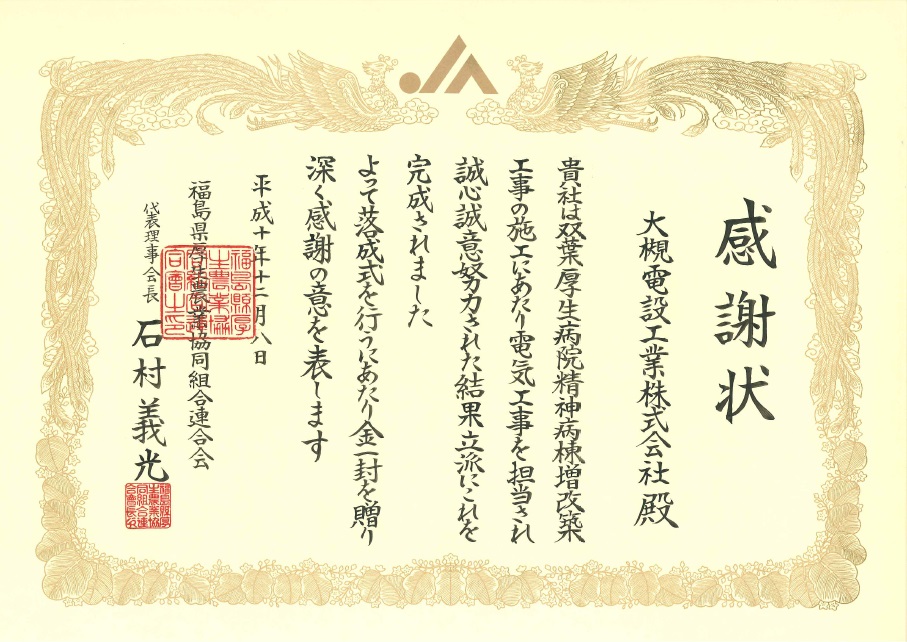 感謝状
大槻電設工業株式会社 殿
貴社は双葉厚生病院精神病棟増改築
工事の施工にあたり電気工事を担当され
誠心誠意努力された結果立派にこれを
完成されました
よって落成式を行うにあたり金一封を贈り
深く感謝の意を表します
平成十年十二月八日
福島県厚生農業協同組合連合会
代表理事会長 石村義光